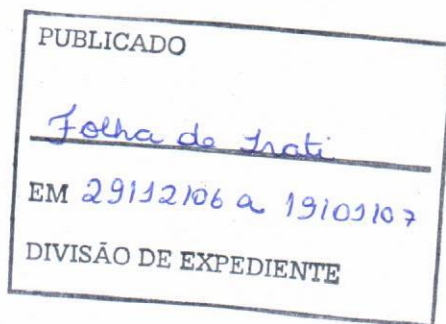 PUBLICADO
Folha de Irati
EM 29/12/06 a 19/01/07
DIVISÃO DE EXPEDIENTE